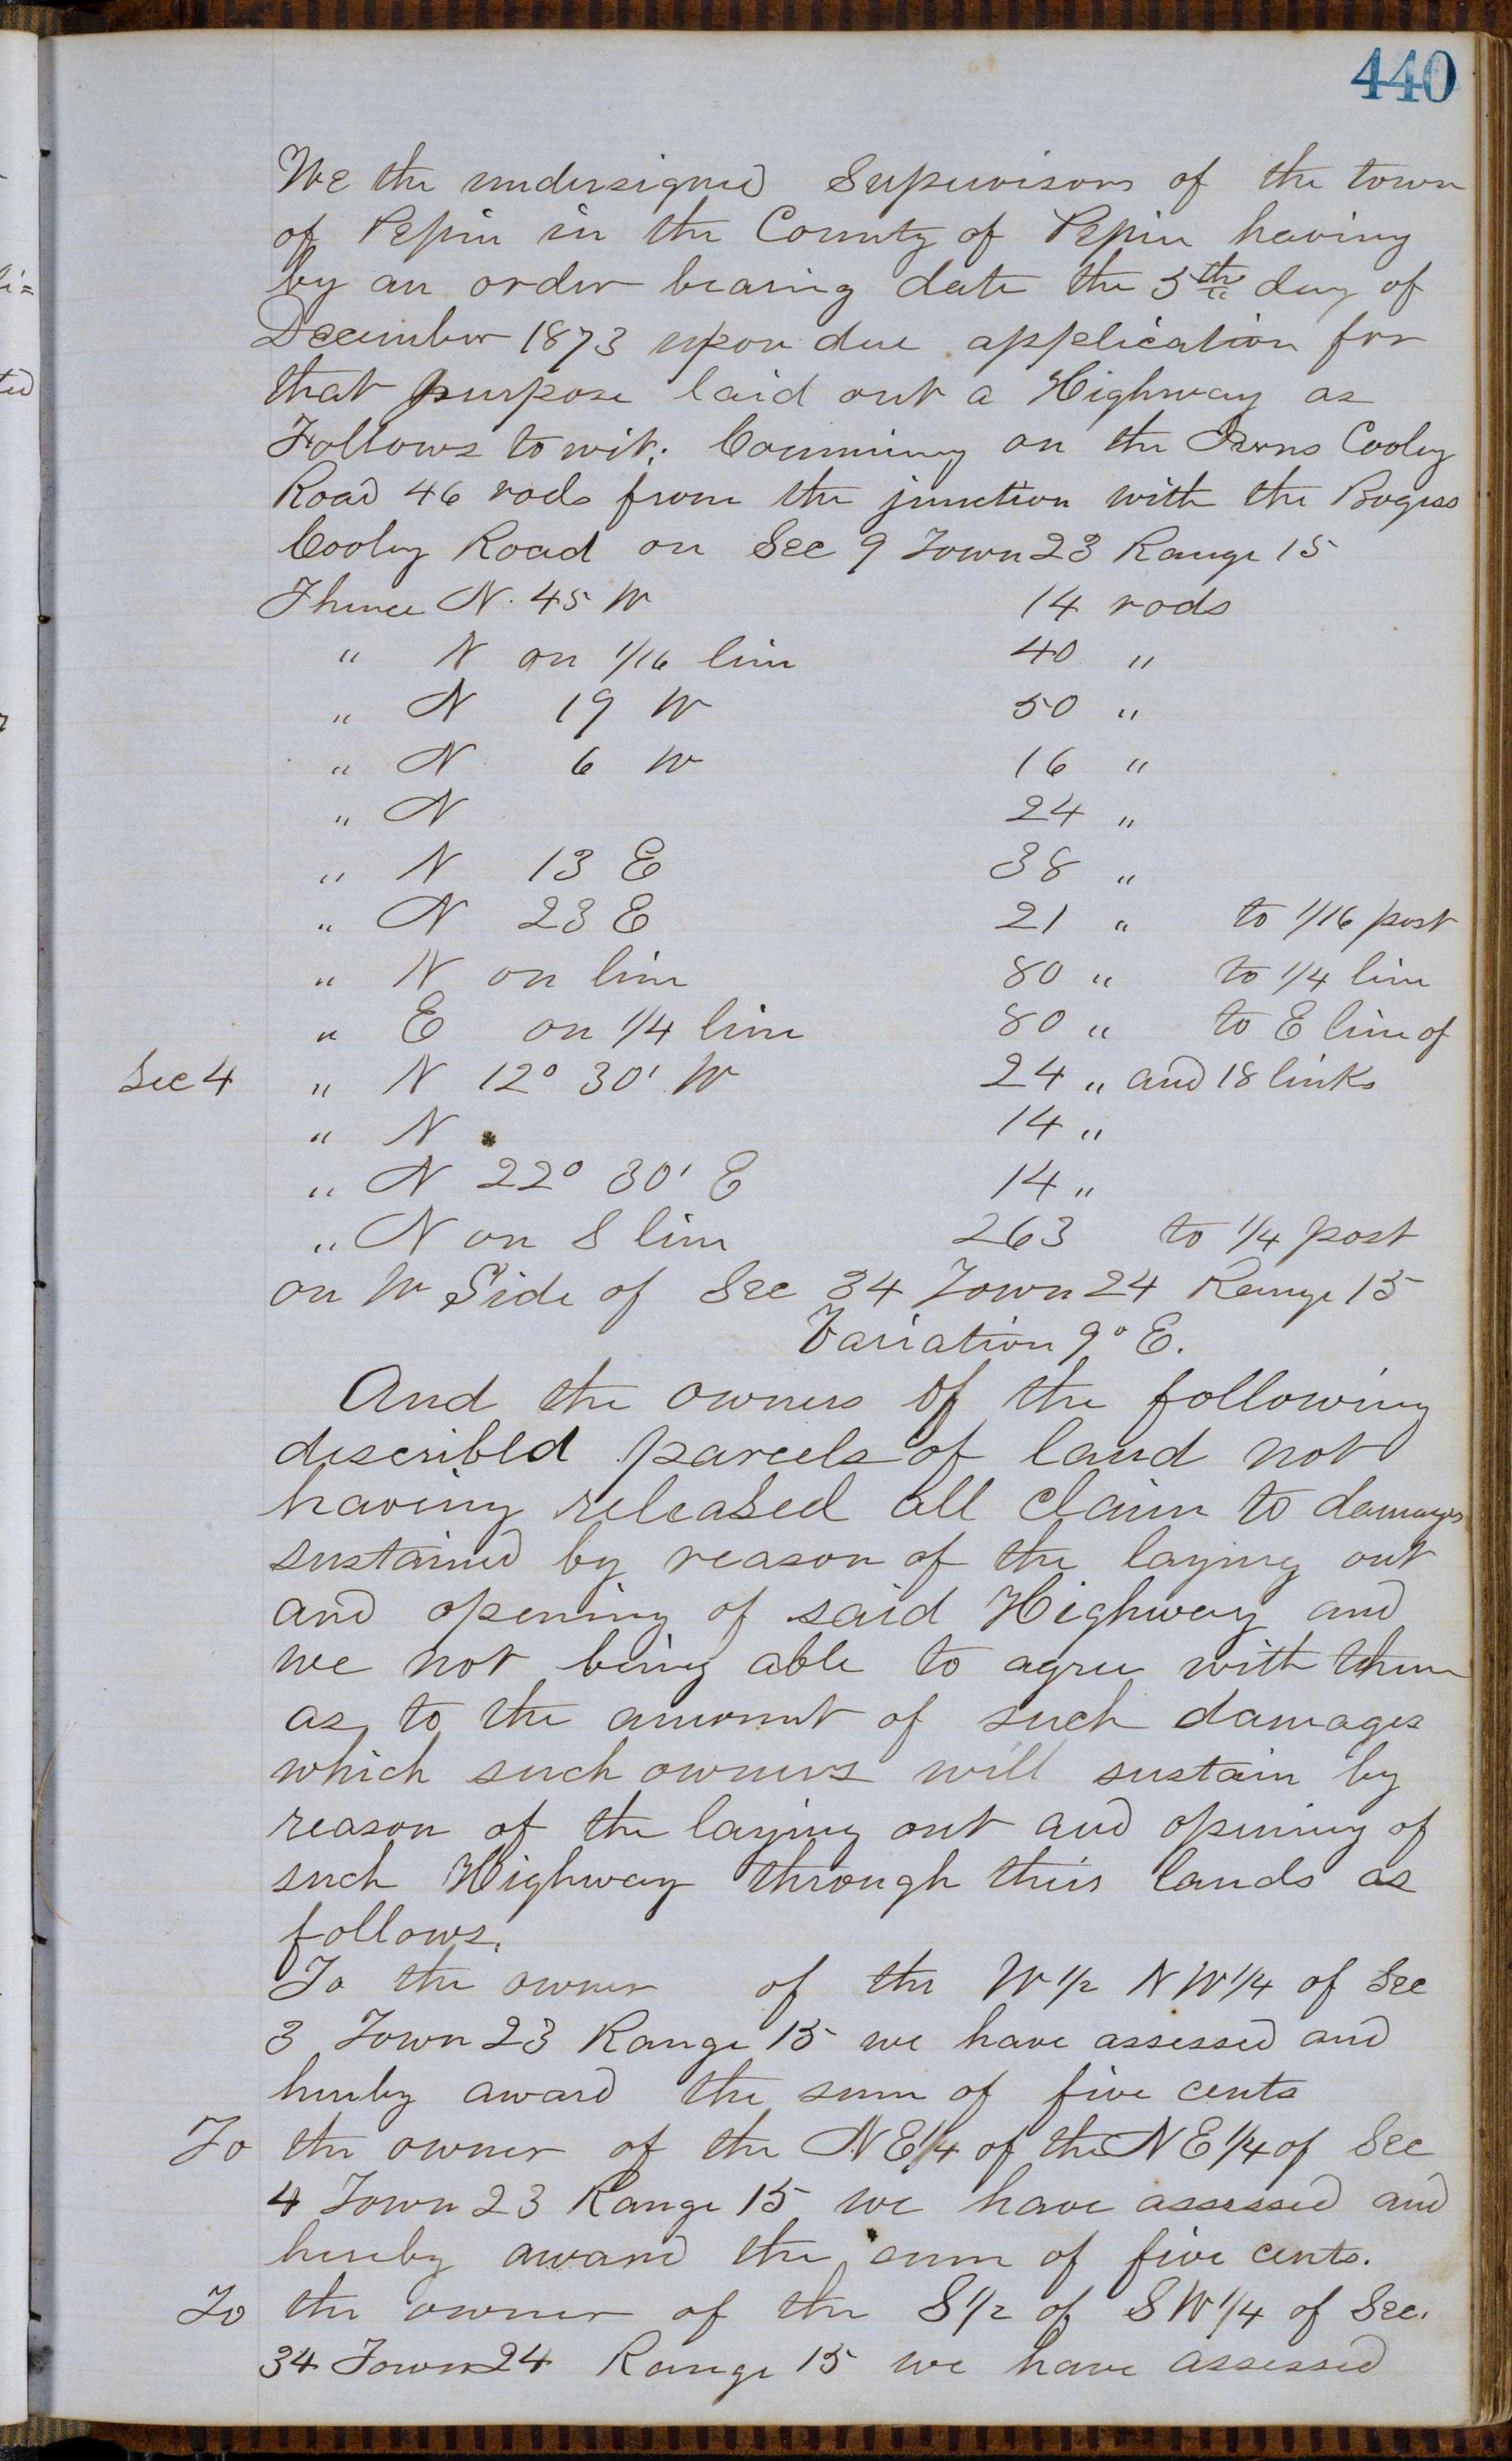 440
We the undersigned Supervisors of the town
of Pepin in the County of Pepin having
by an order bearing date the 5th day of
December 1873 upon due application for
that purpose laid out a Highway as
Follows to wit; Comming on the Cooley
Road 46 rods from the junction with the Bogus
Cooley Road on Sec 9 Town 23 Range 15
Thence N. 45 W 14 rods
" N on 1/16 line 40 "
" N 19 W 50 "
" N 6 W 16 "
" N 24 "
" N 13 E 38 "
" N 23 E 21 " to 1/16 post
" N on line 80 " to 1/4 line
" E on 1/4 line 80 " to E line of
Sec 4 " N 12° 30' W 24 " and 18 links
" N 14 "
" N 22° 30' E 14 "
" N on S line 263 to 1/4 post
on W Side of Sec 34 Town 24 Range 15
Variation 9° E.
And the owners of the following
described parcels of land not
having released all claim to damages
sustained by reason of the laying out
and opening of said Highway and
we not being able to agree with them
as to the amount of such damages
which such owners will sustain by
reason of the laying out and opening of
such Highway through their lands as
follows.
To the owner of the W 1/2 N W 1/4 of Sec
3 Town 23 Range 15 we have assessed and
hereby award the sum of five cents
To the owner of the N E 1/4 of the N E 1/4 of Sec
4 Town 23 Range 15 we have assessed and
hereby award the sum of five cents.
To the owner of the S 1/2 of S W 1/4 of Sec.
34 Town 24 Range 15 we have assessed